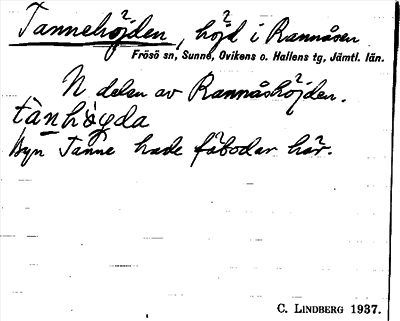 Tannehöjden, höjd i Rannåsen
Frösö sn, Sunne, Ovikens o. Hallens tg, Jämtl. län.
N delen av Rannåshöjden.
tànhø̀gda
Byn Tanne hade fäbodar här.
C. LINDBERG 1937.